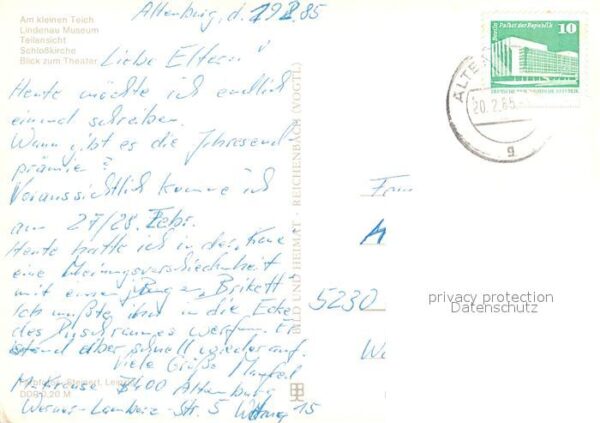 Am kleinen Teich
Lindenau Museum
Teilansicht
Schloßkirche
Blick zum Theater
Altenburg, d. 19.II.85
Liebe Eltern!
Heute möchte ich endlich
einmal schreiben.
Wann gibt es die Jahresend-
prämie?
Voraussichtlich komme ich
am 27/28. Febr.
Heute hatte ich in der
eine Meinungsverschiedenheit
mit einem "Brikett"
Ich mußte ihn in die Ecke
des Duschraumes werfen. Er
stand aber schnell wieder auf.
Viele Grüße Manfred
M. Krause 7400 Altenburg
Werner-Lamberz-Str. 5 15
DDR 0,20 M
BILD UND HEIMAT · REICHENBACH (VOGTL)
Berlin Palast der Republik
10
20.2.85
g
5230
privacy protection
Datenschutz